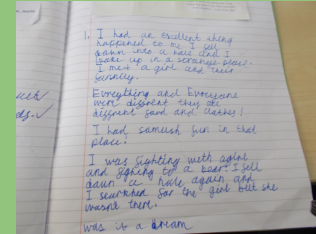 1. I had an exellent thing
happened to me I fell
down into a hole and I
woke up in a strange place.
I met a girl and their
family.
Everything and Everyone
were diffrent they ate
diffrent food and clothes!
I had samush fun in that
place.
I was fighting with agint
and fighting to a bear. I fell
down a hole again and
I searched for the girl but she
wasnt there.
was it a dream